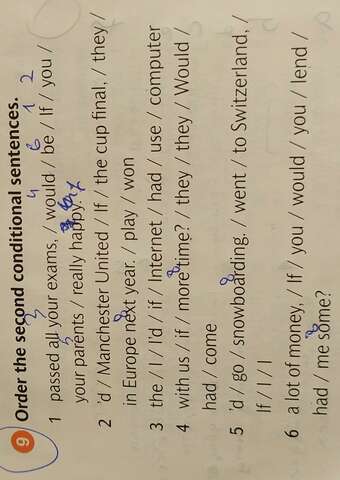 9 Order the second conditional sentences.
1 passed all your exams, / would / be / If / you /
your parents / really happy.
2 'd / Manchester United / If / the cup final, / they /
in Europe next year. / play / won
3 the / I / I'd / if / Internet / had / use / computer
4 with us / if / more time? / they / they / Would /
had / come
5 'd / go / snowboarding. / went / to Switzerland, /
If / I / I
6 a lot of money, / If / you / would / you / lend /
had / me some?